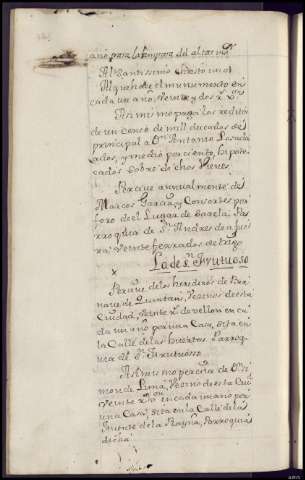 año para la lampara del altar mor
Al Santissimo Christo un
el munumento en
cada un año, veinte y dos Rs
Asimismo paga los reditos
de un censo de mill ducados de
principal a Dn Antonio
ados, y medio por ciento, hipote
cados sobre dichos vienes
Percive annualmente de
Marcos Garcia, y Consortes por
foro del Lugar de Parro
quia de Sn Andres de
ra, veinte ferrados de trigo
La de Sn Frutuoso
Percive de los herederos de Ber
nave de Quintans, vecinos de esta
Ciudad, veinte Rs de vellon en ca
da un año por una Casa, sita en
la Calle de las huertas Parroq
uia de Sn Frutuoso
Asimismo percive de Dn Si
mon de Lima, vecino de esta Ciud
veinte Rs en cada un año por
una Casa, sita en la Calle de la
fuente de la Rayna, Parroquia
dicha